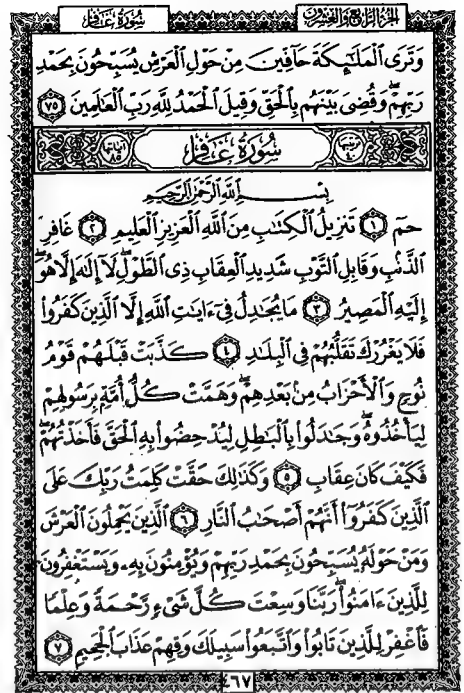 سُورَةُ غَافِر
الجُزْءُ الرَّابِعُ وَالعِشْرُونَ
وَتَرَى ٱلْمَلَٰٓئِكَةَ حَآفِّينَ مِنْ حَوْلِ ٱلْعَرْشِ يُسَبِّحُونَ بِحَمْدِ
رَبِّهِمْ ۖ وَقُضِىَ بَيْنَهُم بِٱلْحَقِّ وَقِيلَ ٱلْحَمْدُ لِلَّهِ رَبِّ ٱلْعَٰلَمِينَ ٧٥
ترتيبها ٤٠ سُورَةُ غَافِر آياتها ٨٥
بِسْمِ ٱللَّهِ ٱلرَّحْمَٰنِ ٱلرَّحِيمِ
حمٓ ١ تَنزِيلُ ٱلْكِتَٰبِ مِنَ ٱللَّهِ ٱلْعَزِيزِ ٱلْعَلِيمِ ٢ غَافِرِ
ٱلذَّنۢبِ وَقَابِلِ ٱلتَّوْبِ شَدِيدِ ٱلْعِقَابِ ذِى ٱلطَّوْلِ ۖ لَآ إِلَٰهَ إِلَّا هُوَ ۖ
إِلَيْهِ ٱلْمَصِيرُ ٣ مَا يُجَٰدِلُ فِىٓ ءَايَٰتِ ٱللَّهِ إِلَّا ٱلَّذِينَ كَفَرُوا۟
فَلَا يَغْرُرْكَ تَقَلُّبُهُمْ فِى ٱلْبِلَٰدِ ٤ كَذَّبَتْ قَبْلَهُمْ قَوْمُ
نُوحٍ وَٱلْأَحْزَابُ مِنۢ بَعْدِهِمْ ۖ وَهَمَّتْ كُلُّ أُمَّةٍۭ بِرَسُولِهِمْ
لِيَأْخُذُوهُ ۖ وَجَٰدَلُوا۟ بِٱلْبَٰطِلِ لِيُدْحِضُوا۟ بِهِ ٱلْحَقَّ فَأَخَذْتُهُمْ ۖ
فَكَيْفَ كَانَ عِقَابِ ٥ وَكَذَٰلِكَ حَقَّتْ كَلِمَتُ رَبِّكَ عَلَى
ٱلَّذِينَ كَفَرُوٓا۟ أَنَّهُمْ أَصْحَٰبُ ٱلنَّارِ ٦ ٱلَّذِينَ يَحْمِلُونَ ٱلْعَرْشَ
وَمَنْ حَوْلَهُۥ يُسَبِّحُونَ بِحَمْدِ رَبِّهِمْ وَيُؤْمِنُونَ بِهِۦ وَيَسْتَغْفِرُونَ
لِلَّذِينَ ءَامَنُوا۟ رَبَّنَا وَسِعْتَ كُلَّ شَىْءٍ رَّحْمَةً وَعِلْمًا
فَٱغْفِرْ لِلَّذِينَ تَابُوا۟ وَٱتَّبَعُوا۟ سَبِيلَكَ وَقِهِمْ عَذَابَ ٱلْجَحِيمِ ٧
٤٦٧